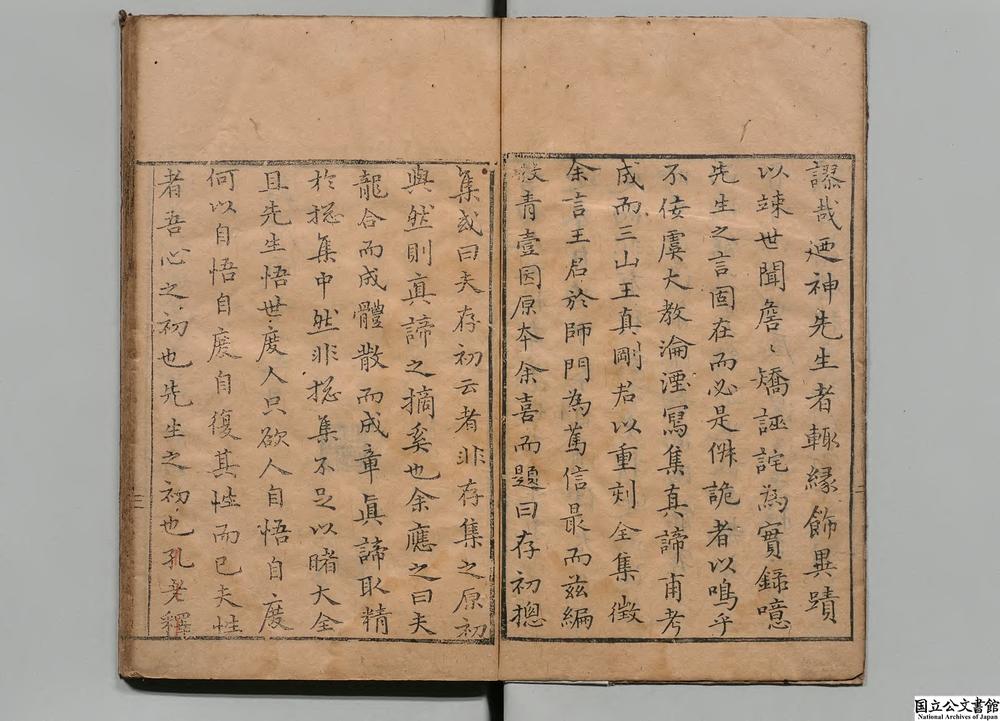 謬哉廼神先生者輙緣飾異蹟
以竦世聞詹〻矯誣詫為實録噫
先生之言固在而必是俶詭者以鳴乎
不佞虞大教淪湮寫集真諦甫考
成而三山王真剛君以重刻全集徵
余言王君於師門為篤信最而茲編
殺青壹因原本余喜而題曰存初摠
集或曰夫存初云者非存集之原初
與然則真諦之摘奚也余應之曰夫
龍合而成體散而成章眞諦取精
於揔集中然非揔集不足以睹大全
且先生悟世度人只欲人自悟自度
何以自悟自度自復其性而已夫性
者吾心之初也先生之初也孔老釋
二
三
国立公文書館
National Archives of Japan